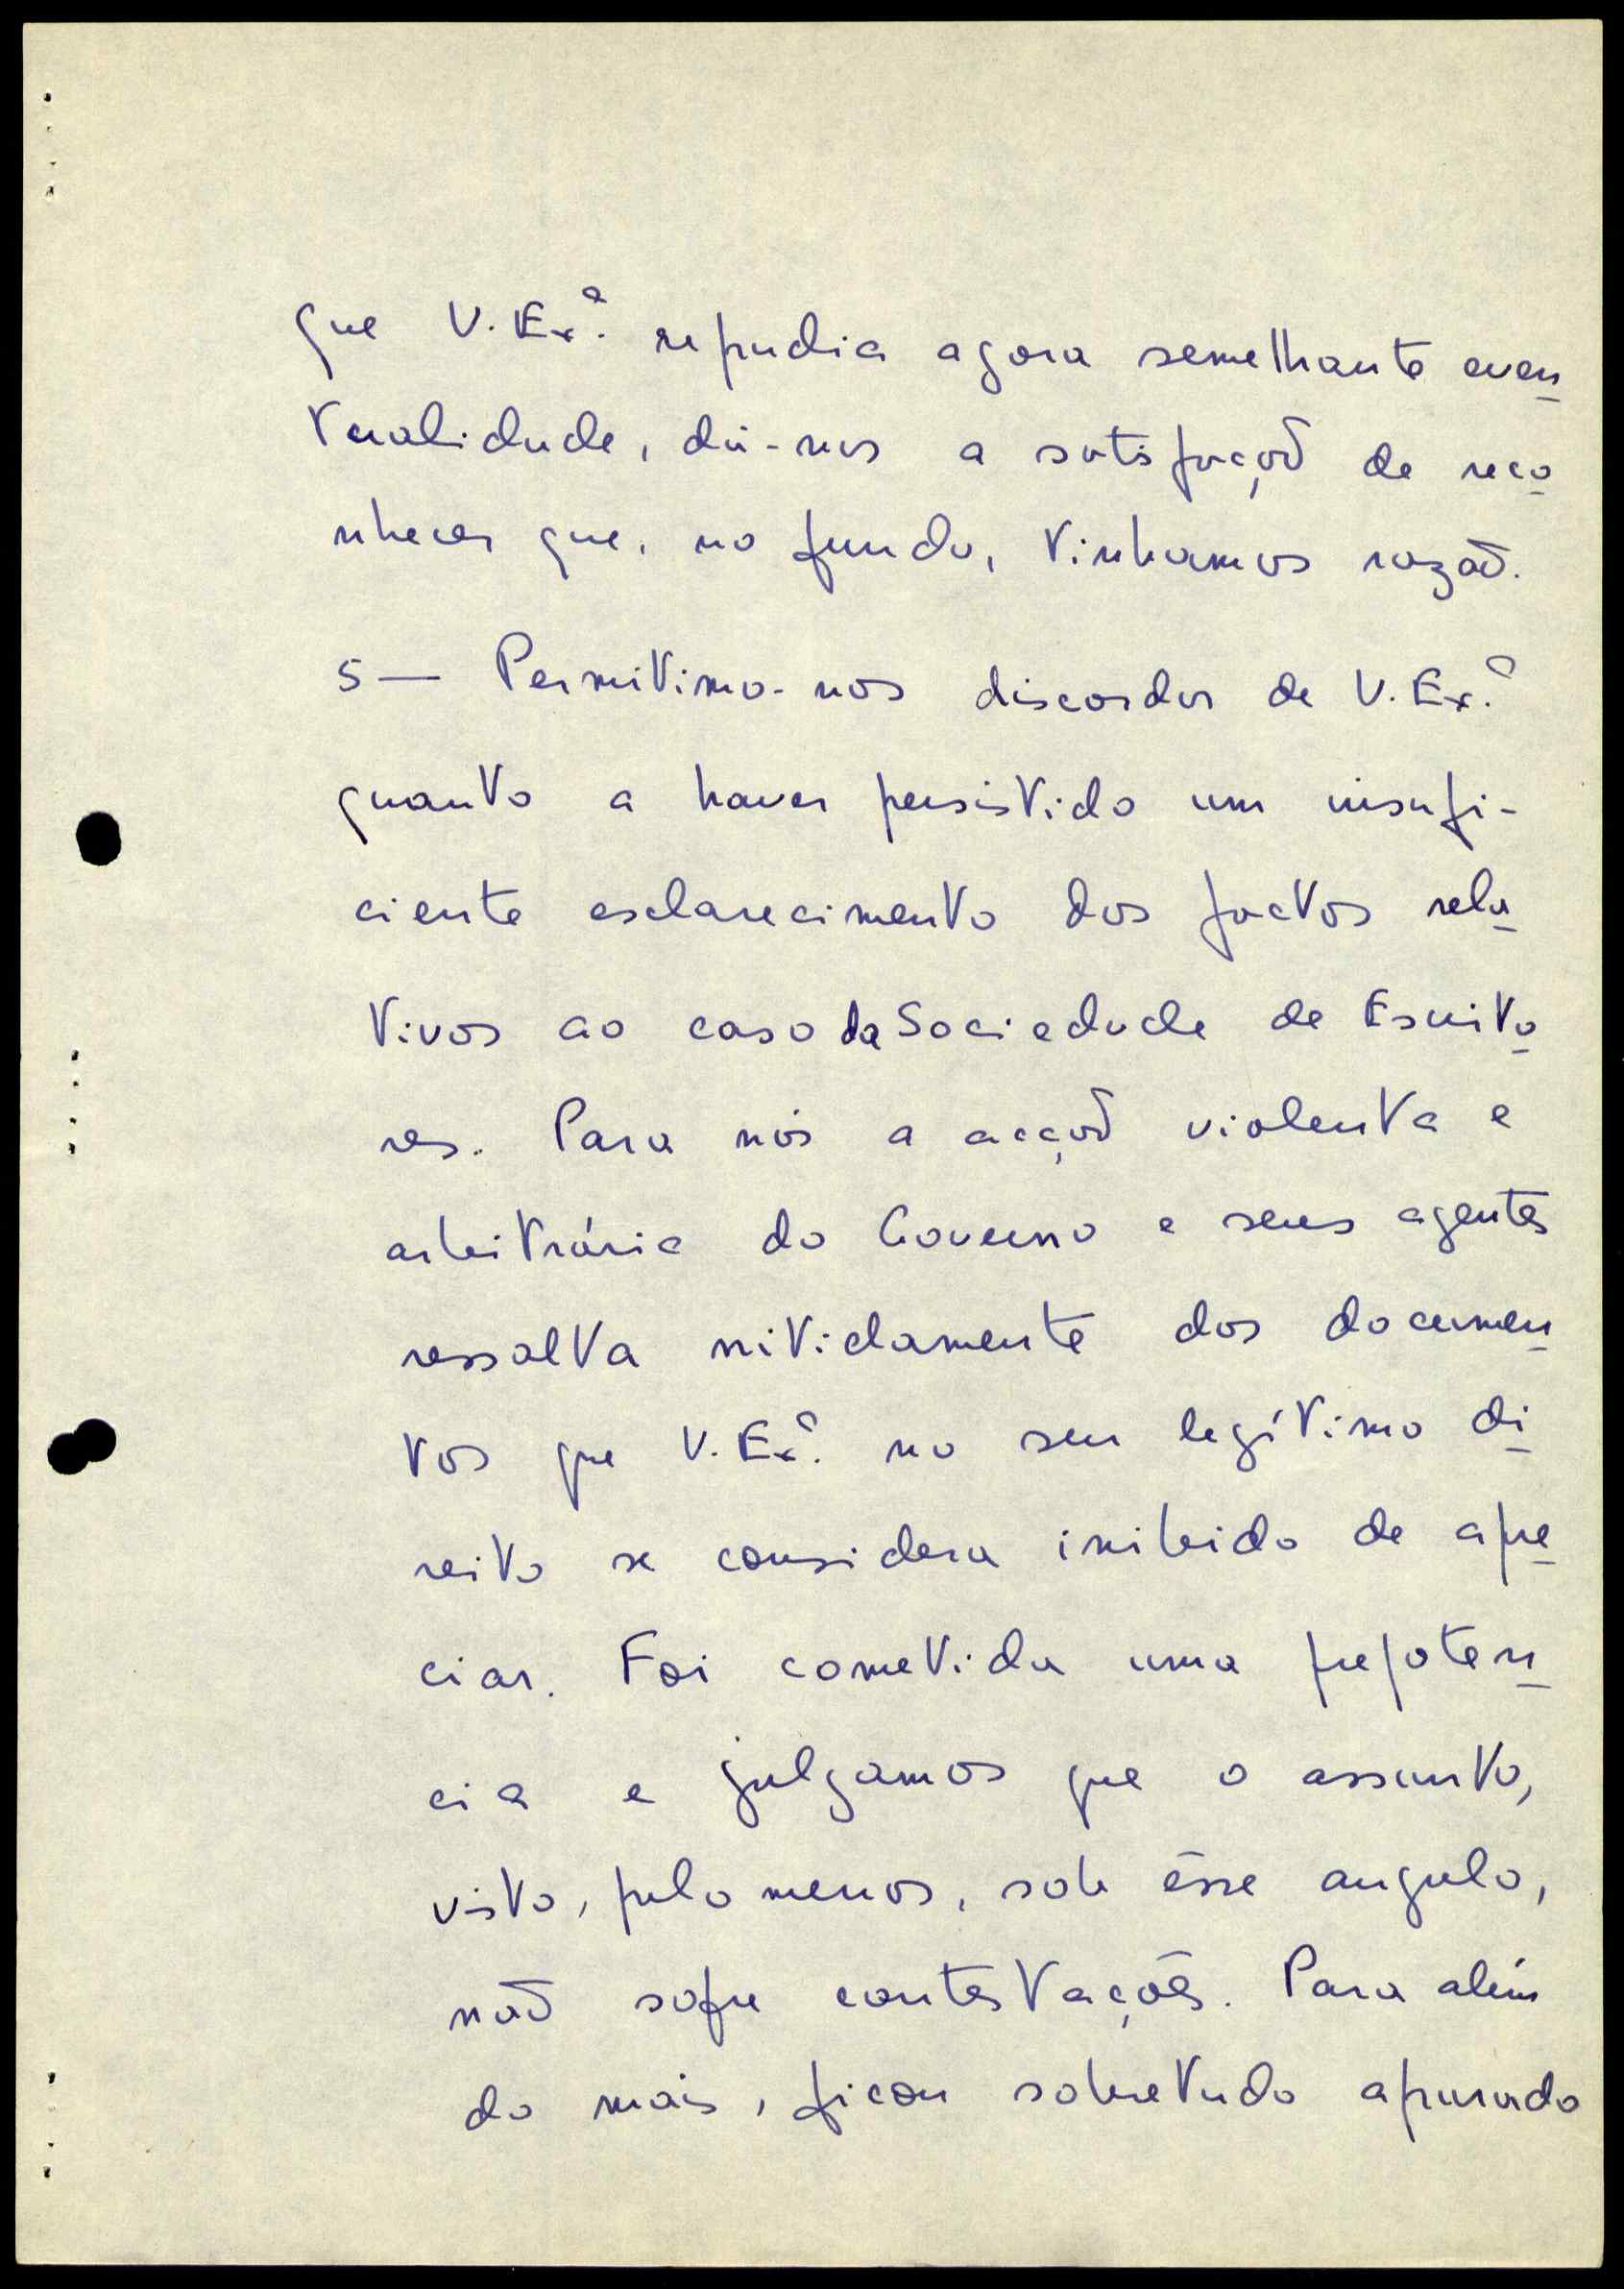 que V. Exª. repudia agora semelhante even
tualidade, dá-nos a satisfação de reco
nhecer que, no fundo, tinhamos razão.
5 — Permitimo-nos discordar de V. Exª.
quanto a haver persistido um insufi-
ciente esclarecimento dos factos rela
tivos ao caso da Sociedade de Escrito
res. Para nós a acção violenta e
arbitrária do Governo e seus agentes
ressalta nitidamente dos documen
tos que V. Exª. no seu legítimo di
reito se considera inibido de apre
ciar. Foi cometida uma prepoten
cia e julgamos que o assunto,
visto, pelo menos, sob êsse angulo,
não sofre contestações. Para além
do mais, ficou sobretudo apurado